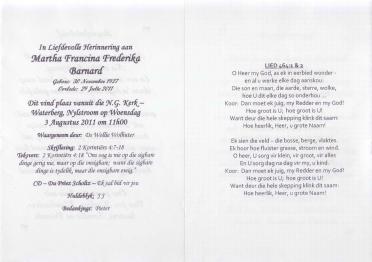 In Liefdevolle Herinnering aan
Martha Francina Frederika
Barnard
Gebore: 30 November 1927
Oorlede: 29 Julie 2011
Dit vind plaas vanuit die N.G. Kerk –
Waterberg, Nylstroom op Woensdag
3 Augustus 2011 om 11H00
Waargeneem deur: Ds Willie Wolhuter
Skriflesing: 2 Korintiërs 4:7-18
Teksvers: 2 Korintiërs 4:18 "Ons oog is nie op die sigbare
dinge gerig nie, maar op die onsigbare, want die sigbare
dinge is tydelik, maar die onsigbare ewig."
CD – Du Preez Scholtz – Ek sal bid vir jou
Huldeblyk:
Bedankings: Pieter
LIED 464:1 & 2
O Heer my God, as ek in eerbied wonder -
en al u werke elke dag aanskou:
Die son en maan, die aarde, sterre, wolke,
hoe U dit elke dag so onderhou ...
Koor: Dan moet ek juig, my Redder en my God!
Hoe groot is U; hoe groot is U!
Want deur die hele skepping klink dit saam:
Hoe heerlik, Heer, u grote Naam!
Ek sien die veld – die bosse, berge, vlaktes.
Ek hoor hoe fluister grasse, stroom en wind.
O heer, U sorg vir klein, vir groot, vir alles
En U sorg dag na dag vir my, u kind.
Koor: Dan moet ek juig, my Redder en my God!
Hoe groot is U; hoe groot is U!
Want deur die hele skepping klink dit saam:
Hoe heerlik, Heer, u grote Naam!